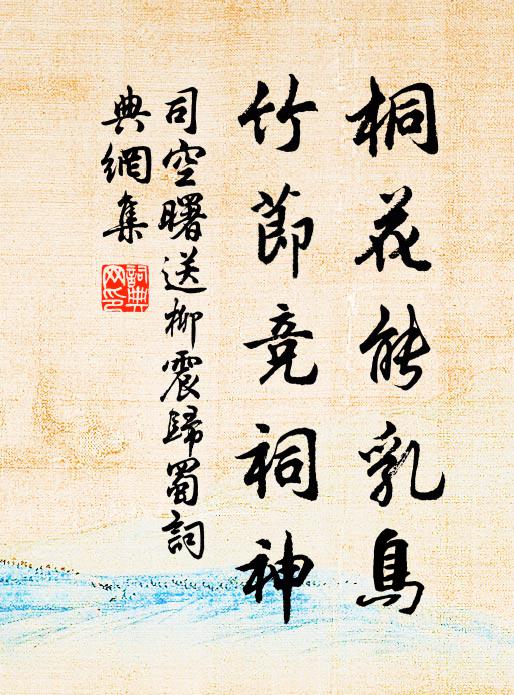 桐花能乳鳥
竹節競祠神
司空曙送柳震歸蜀詞
典網集
詞典網印